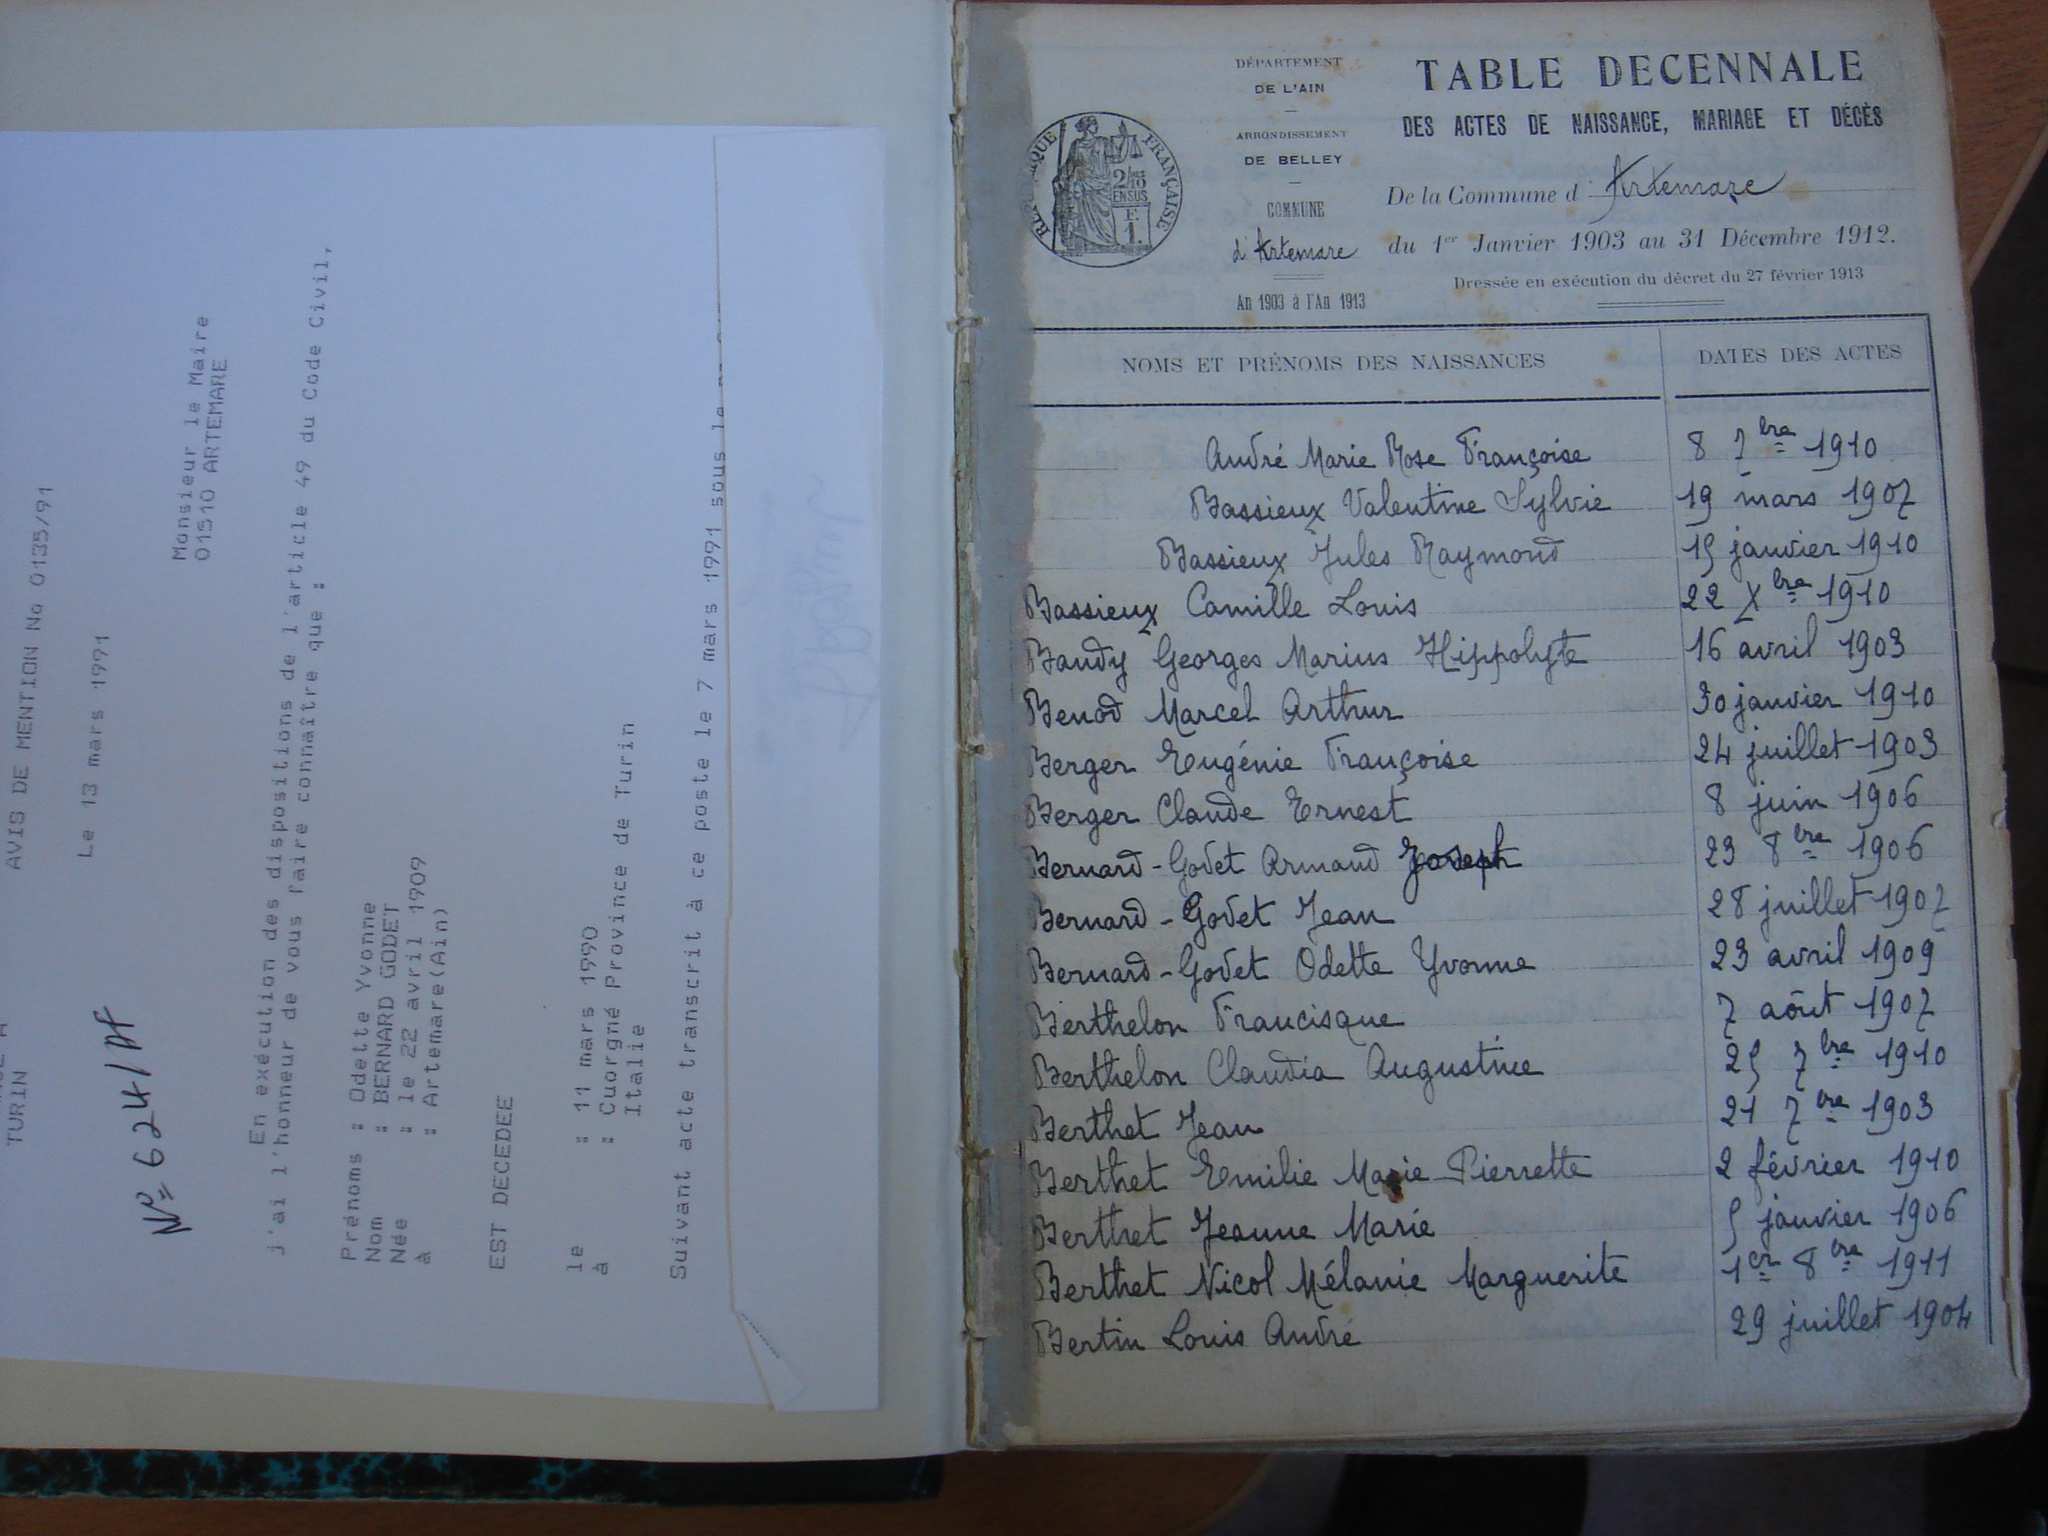 TURIN
AVIS DE MENTION No 0135/91
Le 13 mars 1991
Nº 624/AF
Monsieur le Maire
01510 ARTEMARE
En exécution des dispositions de l'article 49 du Code Civil,
j'ai l'honneur de vous faire connaître que :
Prénoms : Odette Yvonne
Nom : BERNARD GODET
Née : le 22 avril 1909
à : Artemare(Ain)
EST DECEDEE
le : 11 mars 1990
à : Cuorgné Province de Turin
Italie
Suivant acte transcrit à ce poste le 7 mars 1991 sous le
RÉPUBLIQUE FRANÇAISE
2/10
EN SUS
F.
1.
DÉPARTEMENT
DE L'AIN
ARRONDISSEMENT
DE BELLEY
COMMUNE
d'Artemare
An 1903 à l'An 1913
TABLE DECENNALE
DES ACTES DE NAISSANCE, MARIAGE ET DÉCÈS
De la Commune d Artemare
du 1er Janvier 1903 au 31 Décembre 1912.
Dressée en exécution du décret du 27 février 1913
NOMS ET PRÉNOMS DES NAISSANCES DATES DES ACTES
André Marie Rose Françoise 8 7bre 1910
Bassieux Valentine Sylvie 19 mars 1907
Bassieux Jules Raymond 15 janvier 1910
Bassieux Camille Louis 22 Xbre 1910
Baudy Georges Marius Hippolyte 16 avril 1903
Benod Marcel Arthur 30 janvier 1910
Berger Eugénie Françoise 24 juillet 1903
Berger Claude Ernest 8 juin 1906
Bernard-Godet Armand Joseph 23 8bre 1906
Bernard-Godet Jean 28 juillet 1907
Bernard-Godet Odette Yvonne 23 avril 1909
Berthelon Francisque 7 aôut 1907
Berthelon Claudia Augustine 25 7bre 1910
Berthet Jean 21 7bre 1903
Berthet Emilie Marie Pierrette 2 février 1910
Berthet Jeanne Marie 5 janvier 1906
Berthet Nicol Mélanie Marguerite 1er 8bre 1911
Bertin Louis André 29 juillet 1904